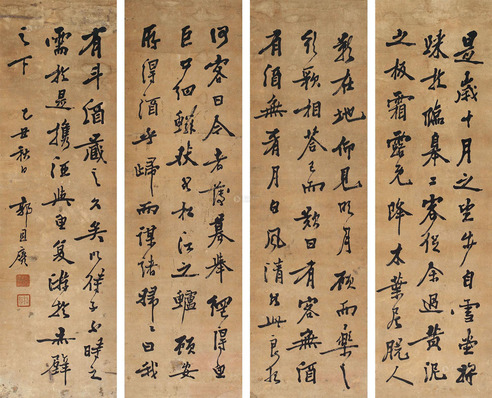 是歲十月之望步自雪堂將
歸於臨皋二客從余過黃泥
之坂霜露既降木葉盡脫人
影在地仰見明月顧而樂之
行歌相答已而歎曰有客無酒
有酒無肴月白風清如此良夜
何客曰今者薄暮舉網得魚
巨口細鱗狀如松江之鱸顧安
所得酒乎歸而謀諸婦婦曰我
有斗酒藏之久矣以待子不時之
需於是攜酒與魚復遊於赤壁
之下 丑秋日 郭